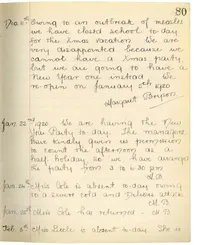 80
Dec 8th Owing to an outbreak of measles
we have closed school to day
for the Xmas vacation. We are
very disappointed because we
cannot have a Xmas party
but we are going to have a
New Year one instead. We
re-open on January 5th 1920
Margaret
Jan 22nd 1920. We are having the New
Year Party to day. The managers
have kindly given us permission
to count the afternoon as a
half holiday so we have arranged
the party from 3 to 6.30 pm
M.B.
Miss Cole is absent to day owing
to a severe cold and Doctors advice
M.B.
Miss Cole has returned. M.B.
Feb. Miss is absent to-day. She is